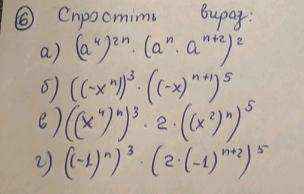 ⑥ Спростіть вираз:
а) (a⁴)²ⁿ · (aⁿ · aⁿ⁺²)²
б) ((-xⁿ))³ · ((-x)ⁿ⁺¹)⁵
в) ((x⁴)ⁿ)³ · 2 · ((x²)ⁿ)⁵
г) ((-1)ⁿ)³ · (2 · (-1)ⁿ⁺²)⁵